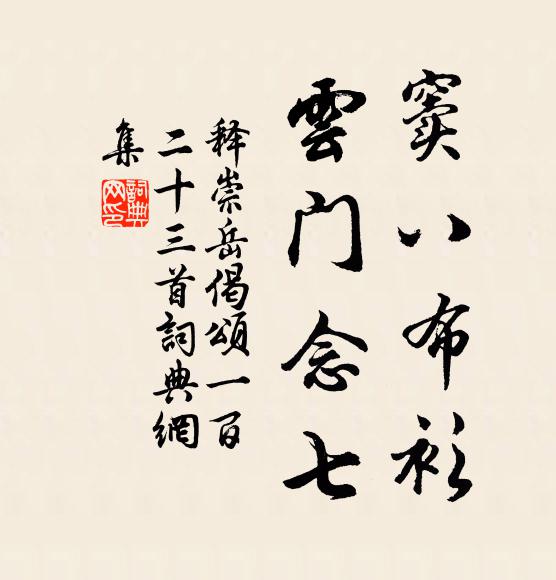 窦八布衫
雲门念七
释崇岳偈頌一百
二十三首詞典網
集
詞典
网印